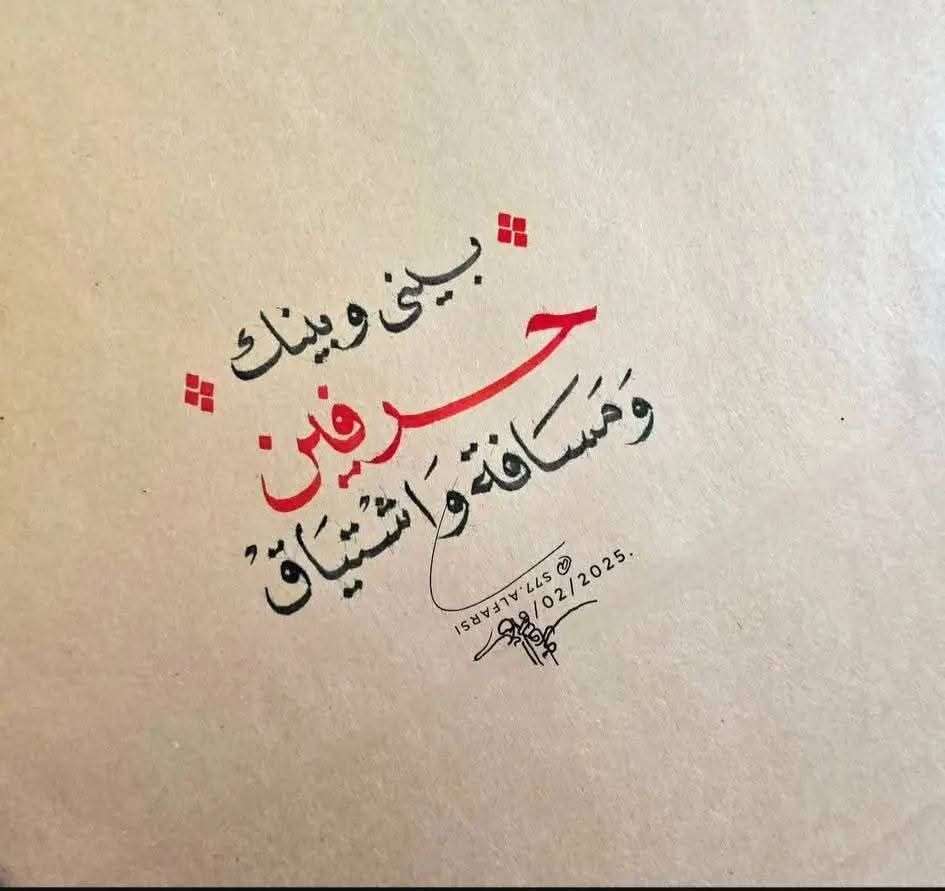 بيني وبينك
حرفين
وَمَسافة وَاشْتيَاقْ
@S77.ALFARSI
/02/2025.